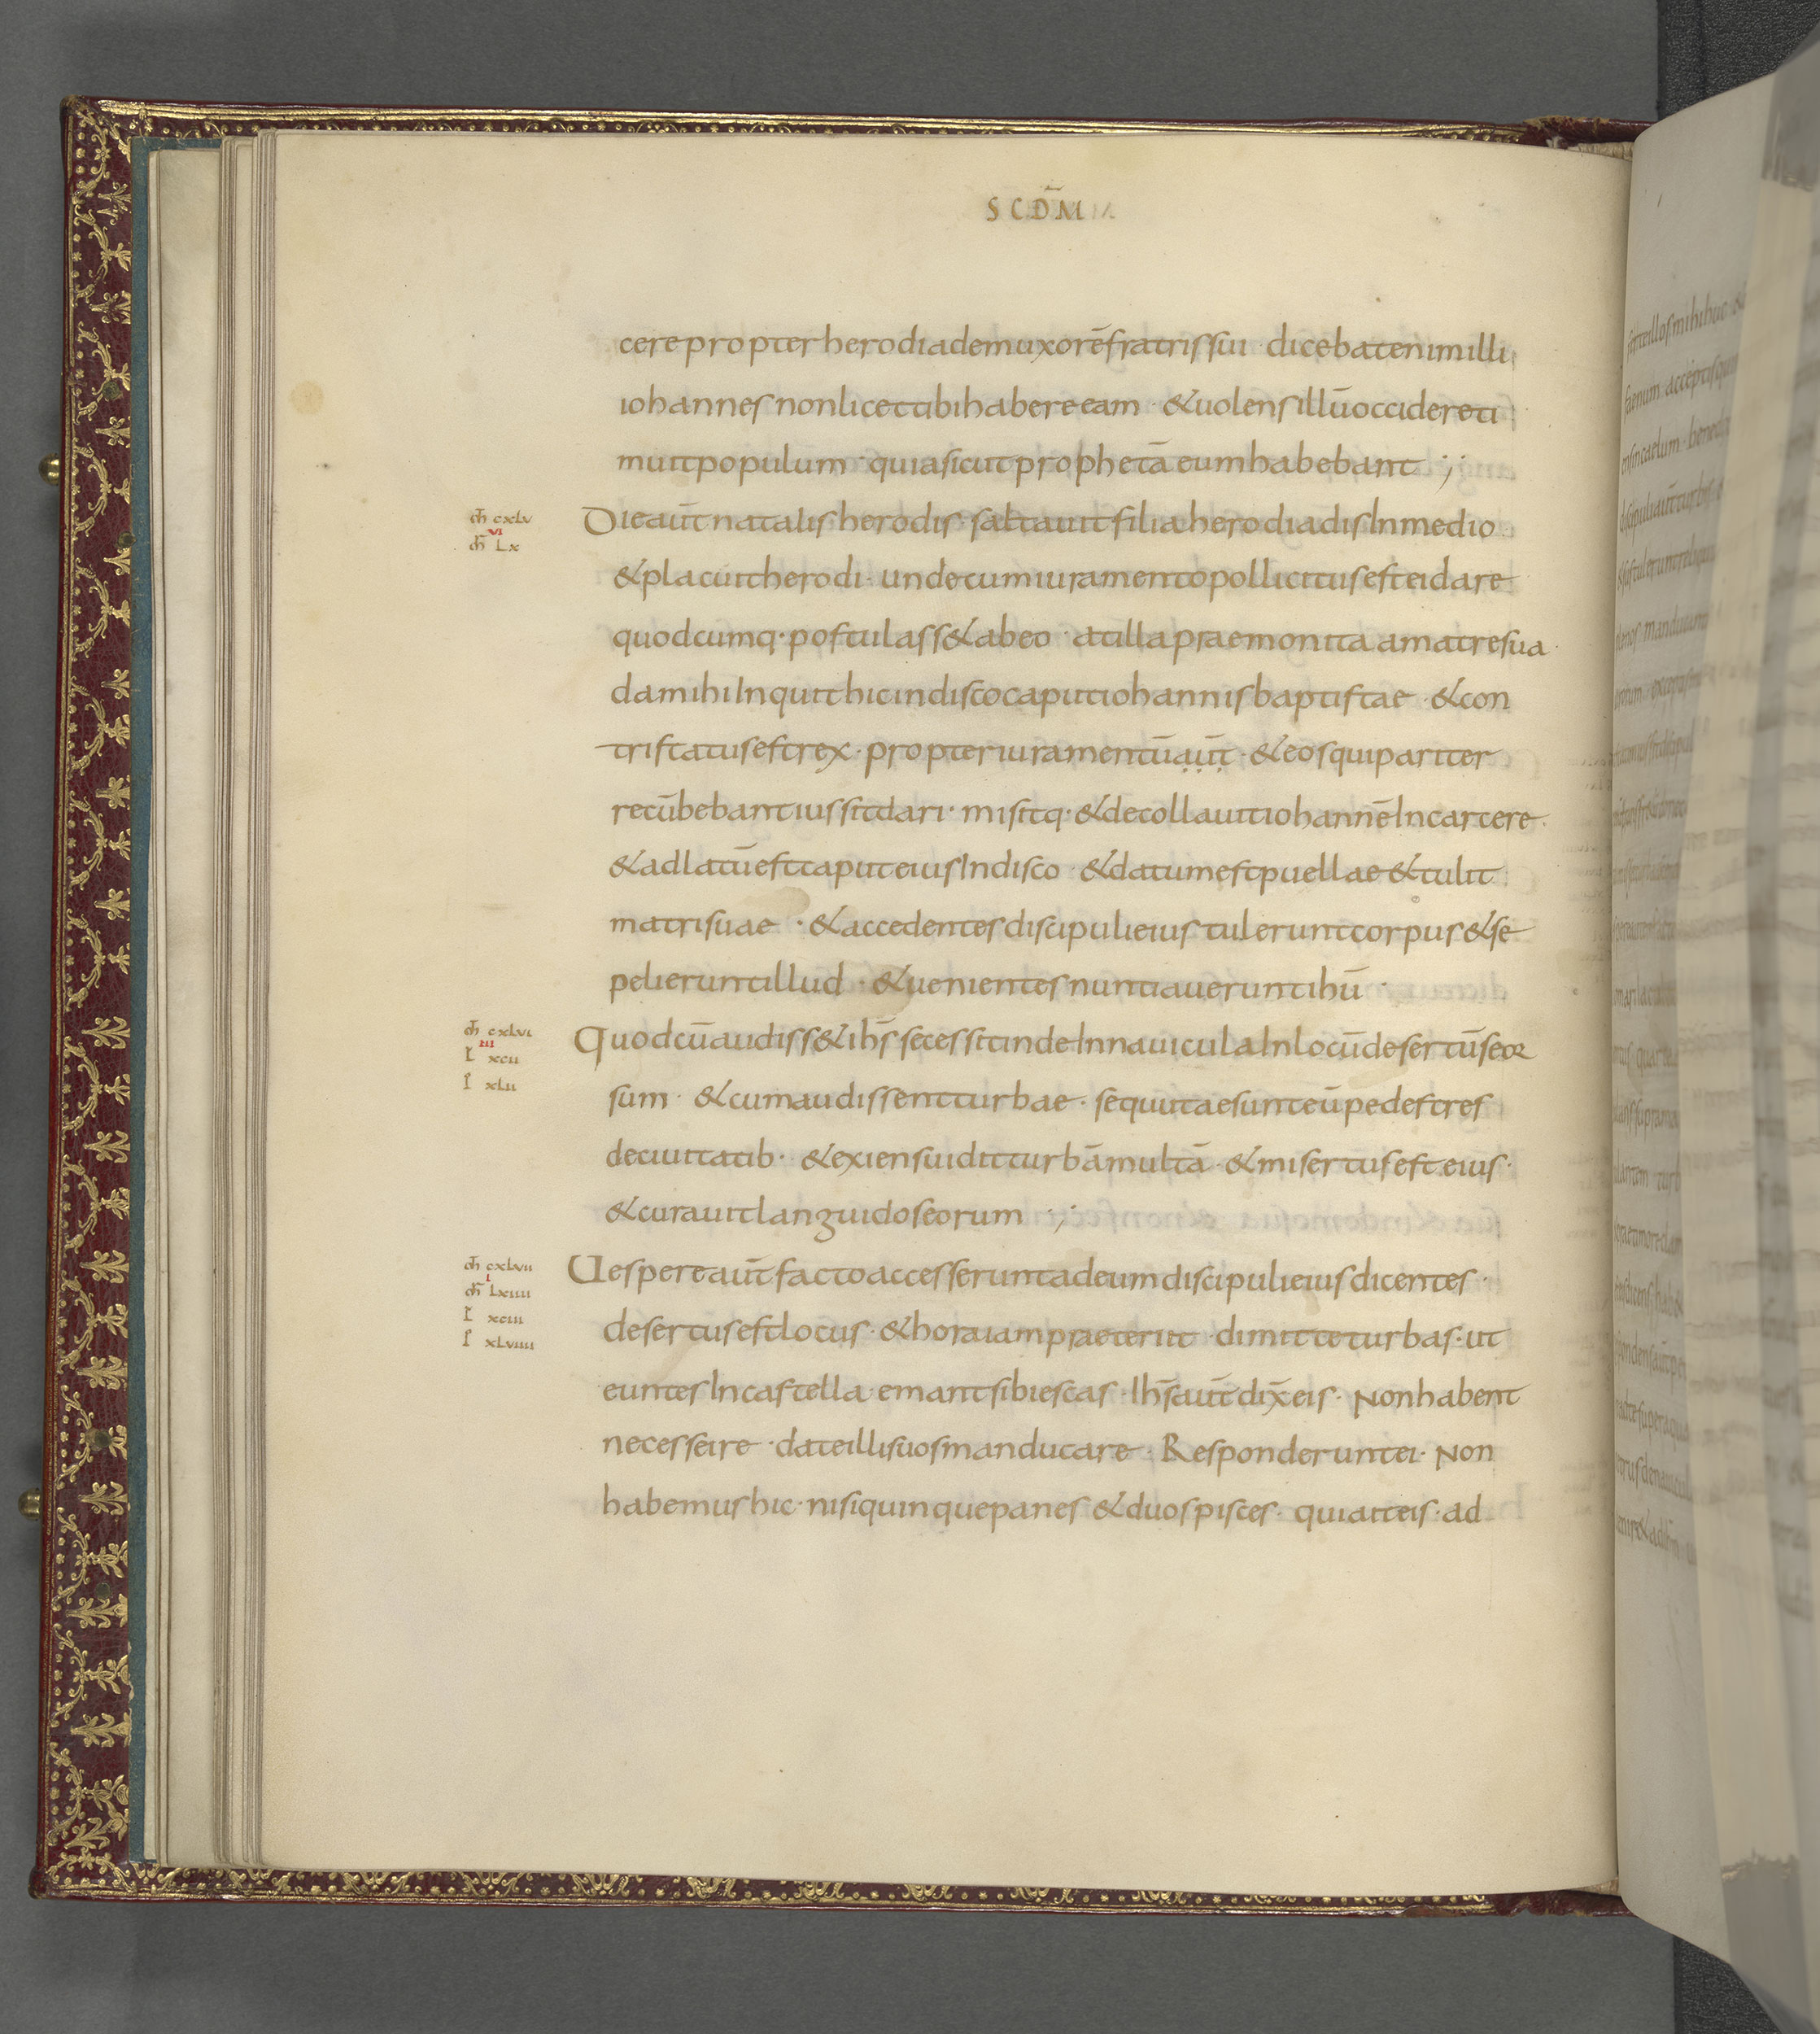 SCDM̄
cere propter herodiadem uxorē fratris sui · dicebat enim illi
iohannes non licet tibi habere eam · & uolens illū occidere ti
muit populum · quia sicut prophetā eum habebant ;
m̄ cxlv
vi
m̄ Lx
Die aūt natalis herodis · saltauit filia herodiadis In medio
& placuit herodi · unde cum iuramento pollicitus est ei dare
quodcumq· postulass& ab eo · at illa praemonita a matre sua ·
da mihi Inquit hic in disco caput iohannis baptistae · & con
tristatus est rex · propter iuramentū aụ̄ṭ · & eos qui pariter
recūbebant iussit dari · misitq· & decollauit iohannē In carcere ·
& adlatū est caput eius In disco · & datum est puellae & tulit
matri suae · & accedentes discipuli eius tulerunt corpus & se
pelierunt illud · & uenientes nuntiauerunt ihū ·
m̄ cxlvi
iii
L xcii
I xlii
Quod cū audiss& ih̄s secessit inde In nauicula In locū desertū seor
sum · & cum audissent turbae · sequutae sunt eū pedestres
de ciuitatib· & exiens uidit turbā multā · & misertus est eius ·
& curauit languidos eorum ;
m̄ cxlvii
i
m̄ Lxiiii
L xciii
I xLviiii
Uespere aūt facto accesserunt ad eum discipuli eius dicentes ·
desertus est locus · & hora iam praeteriit · dimitte turbas · ut
euntes In castella emant sibi escas · Ih̄s aūt dix̄ eis · Non habent
necesse ire · date illis uos manducare · Responderunt ei · Non
habemus hic · nisi quinque panes & duos pisces · qui ait eis · ad